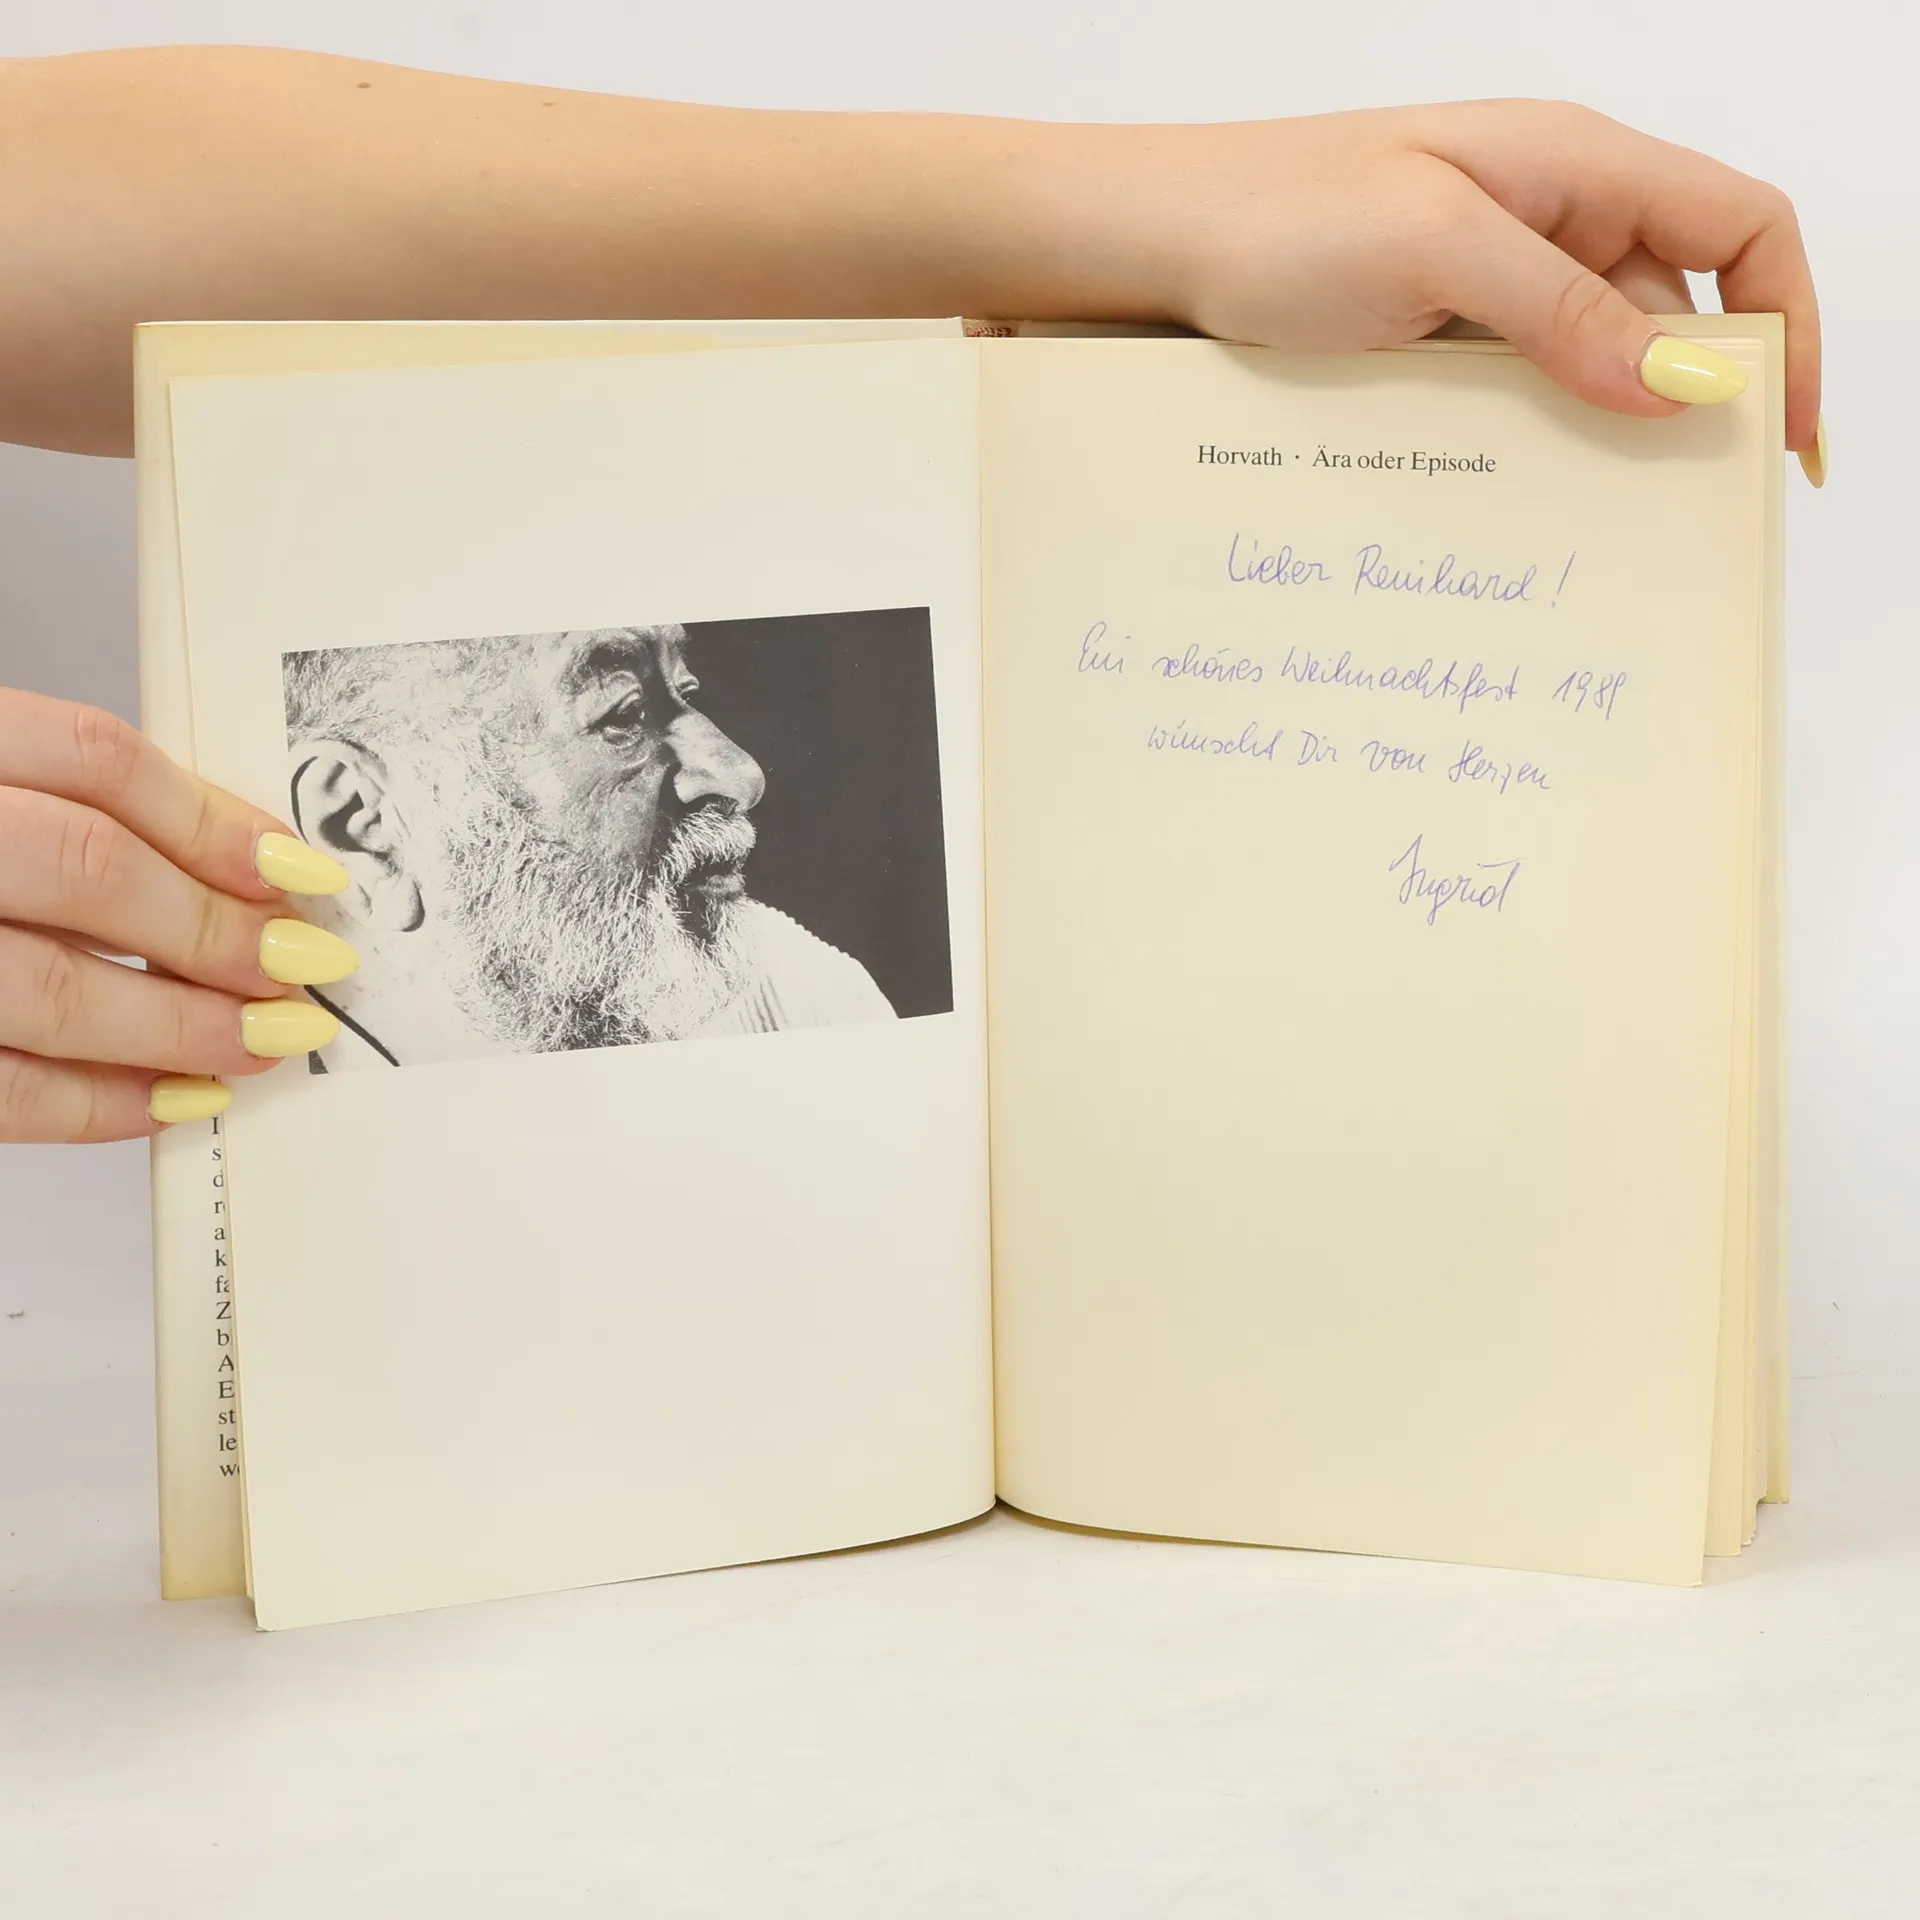 I
s
d
r
a
k
fa
Z
b
A
E
st
le
we
Horvath · Ära oder Episode
Lieber Reinhard!
Ein schönes Weihnachtsfest 1989
wünscht Dir von Herzen
Ingrid